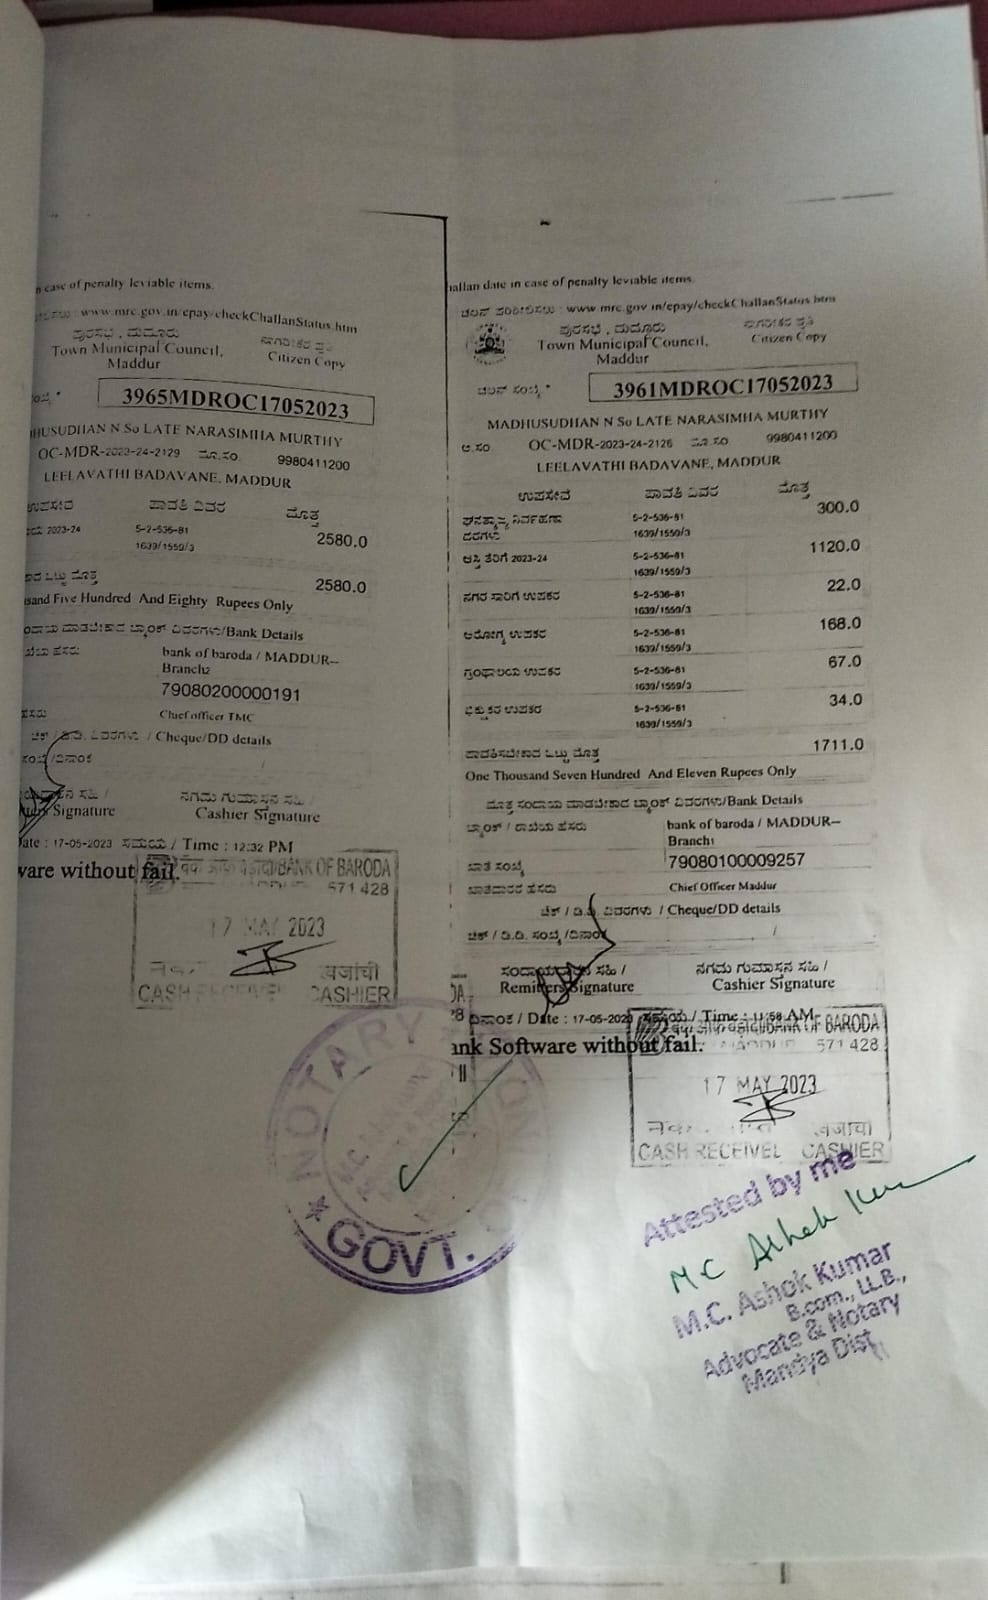 n case of penalty leviable items.
www.mrc.gov.in/epay/checkChallanStatus.htm
ಪುರಸಭೆ , ಮದ್ದೂರು
ನಾಗರೀಕರ ಪ್ರತಿ
Town Municipal Council,
Maddur
Citizen Copy
3965MDROC17052023
HUSUDHAN N So LATE NARASIMHA MURTHY
OC-MDR-2023-24-2129 ಮೊ.ಸಂ. 9980411200
LEELAVATHI BADAVANE, MADDUR
ಉಪಸೇವೆ ಪಾವತಿ ವಿವರ ಮೊತ್ತ
2023-24 5-2-536-81 2580.0
1639/1559/3
ಒಟ್ಟು ಮೊತ್ತ 2580.0
sand Five Hundred And Eighty Rupees Only
ಂದಾಯ ಮಾಡಬೇಕಾದ ಬ್ಯಾಂಕ್ ವಿವರಗಳು/Bank Details
ಹೆಸರು bank of baroda / MADDUR--
Branch2
79080200000191
ಹೆಸರು Chief officer TMC
ಚೆಕ್ / ಡಿ.ಡಿ. ವಿವರಗಳು / Cheque/DD details
ಸಂಖ್ಯೆ /ದಿನಾಂಕ /
ಸಹಿ / ನಗದು ಗುಮಾಸ್ತನ ಸಹಿ /
Signature Cashier Signature
Date : 17-05-2023 ಸಮಯ / Time : 12:32 PM
ware without fail.
BANK OF BARODA
571 428
17 MAY 2023
खजांची
CASH RECEIVE CASHIER
hallan date in case of penalty leviable items.
ಚಲನ್ ಪರಿಶೀಲಿಸಲು : www mrc gov in/epay/checkChallanStatus htm
ಪುರಸಭೆ , ಮದ್ದೂರು
ನಾಗರೀಕರ ಪ್ರತಿ
Town Municipal Council,
Maddur
Citizen Copy
ಚಲನ್ ಸಂಖ್ಯೆ * 3961MDROC17052023
MADHUSUDHAN N So LATE NARASIMHA MURTHY
ಅ.ಸಂ OC-MDR-2023-24-2126 ಮೊ.ಸಂ 9980411200
LEELAVATHI BADAVANE, MADDUR
ಉಪಸೇವೆ ಪಾವತಿ ವಿವರ ಮೊತ್ತ
ಘನತ್ಯಾಜ್ಯ ನಿರ್ವಹಣಾ 5-2-536-81 300.0
ದರಗಳು 1639/1559/3
ಆಸ್ತಿ ತೆರಿಗೆ 2023-24 5-2-536-81 1120.0
1639/1559/3
ನಗರ ಸಾರಿಗೆ ಉಪಕರ 5-2-536-81 22.0
1639/1559/3
ಆರೋಗ್ಯ ಉಪಕರ 5-2-536-81 168.0
1639/1559/3
ಗ್ರಂಥಾಲಯ ಉಪಕರ 5-2-536-81 67.0
1639/1559/3
ಭಿಕ್ಷುಕರ ಉಪಕರ 5-2-536-81 34.0
1639/1559/3
ಪಾವತಿಸಬೇಕಾದ ಒಟ್ಟು ಮೊತ್ತ 1711.0
One Thousand Seven Hundred And Eleven Rupees Only
ಮೊತ್ತ ಸಂದಾಯ ಮಾಡಬೇಕಾದ ಬ್ಯಾಂಕ್ ವಿವರಗಳು/Bank Details
ಬ್ಯಾಂಕ್ / ಶಾಖೆಯ ಹೆಸರು bank of baroda / MADDUR--
Branch1
ಖಾತೆ ಸಂಖ್ಯೆ 79080100009257
ಖಾತೆದಾರರ ಹೆಸರು Chief Officer Maddur
ಚೆಕ್ / ಡಿ.ಡಿ. ವಿವರಗಳು / Cheque/DD details
ಚೆಕ್ / ಡಿ.ಡಿ. ಸಂಖ್ಯೆ /ದಿನಾಂಕ /
ಸಂದಾಯದಾರನ ಸಹಿ / ನಗದು ಗುಮಾಸ್ತನ ಸಹಿ /
Remitters Signature Cashier Signature
ದಿನಾಂಕ / Date : 17-05-2023 ಸಮಯ / Time : 11:58 AM
ank Software without fail.
BANK OF BARODA
MADDUR 571 428
17 MAY 2023
खजांची
CASH RECEIVE CASHIER
NOTARY
GOVT.
Attested by me
M.C Ashok Kumar
M.C. Ashok Kumar
B.com., LL.B.,
Advocate & Notary
Mandya Dist